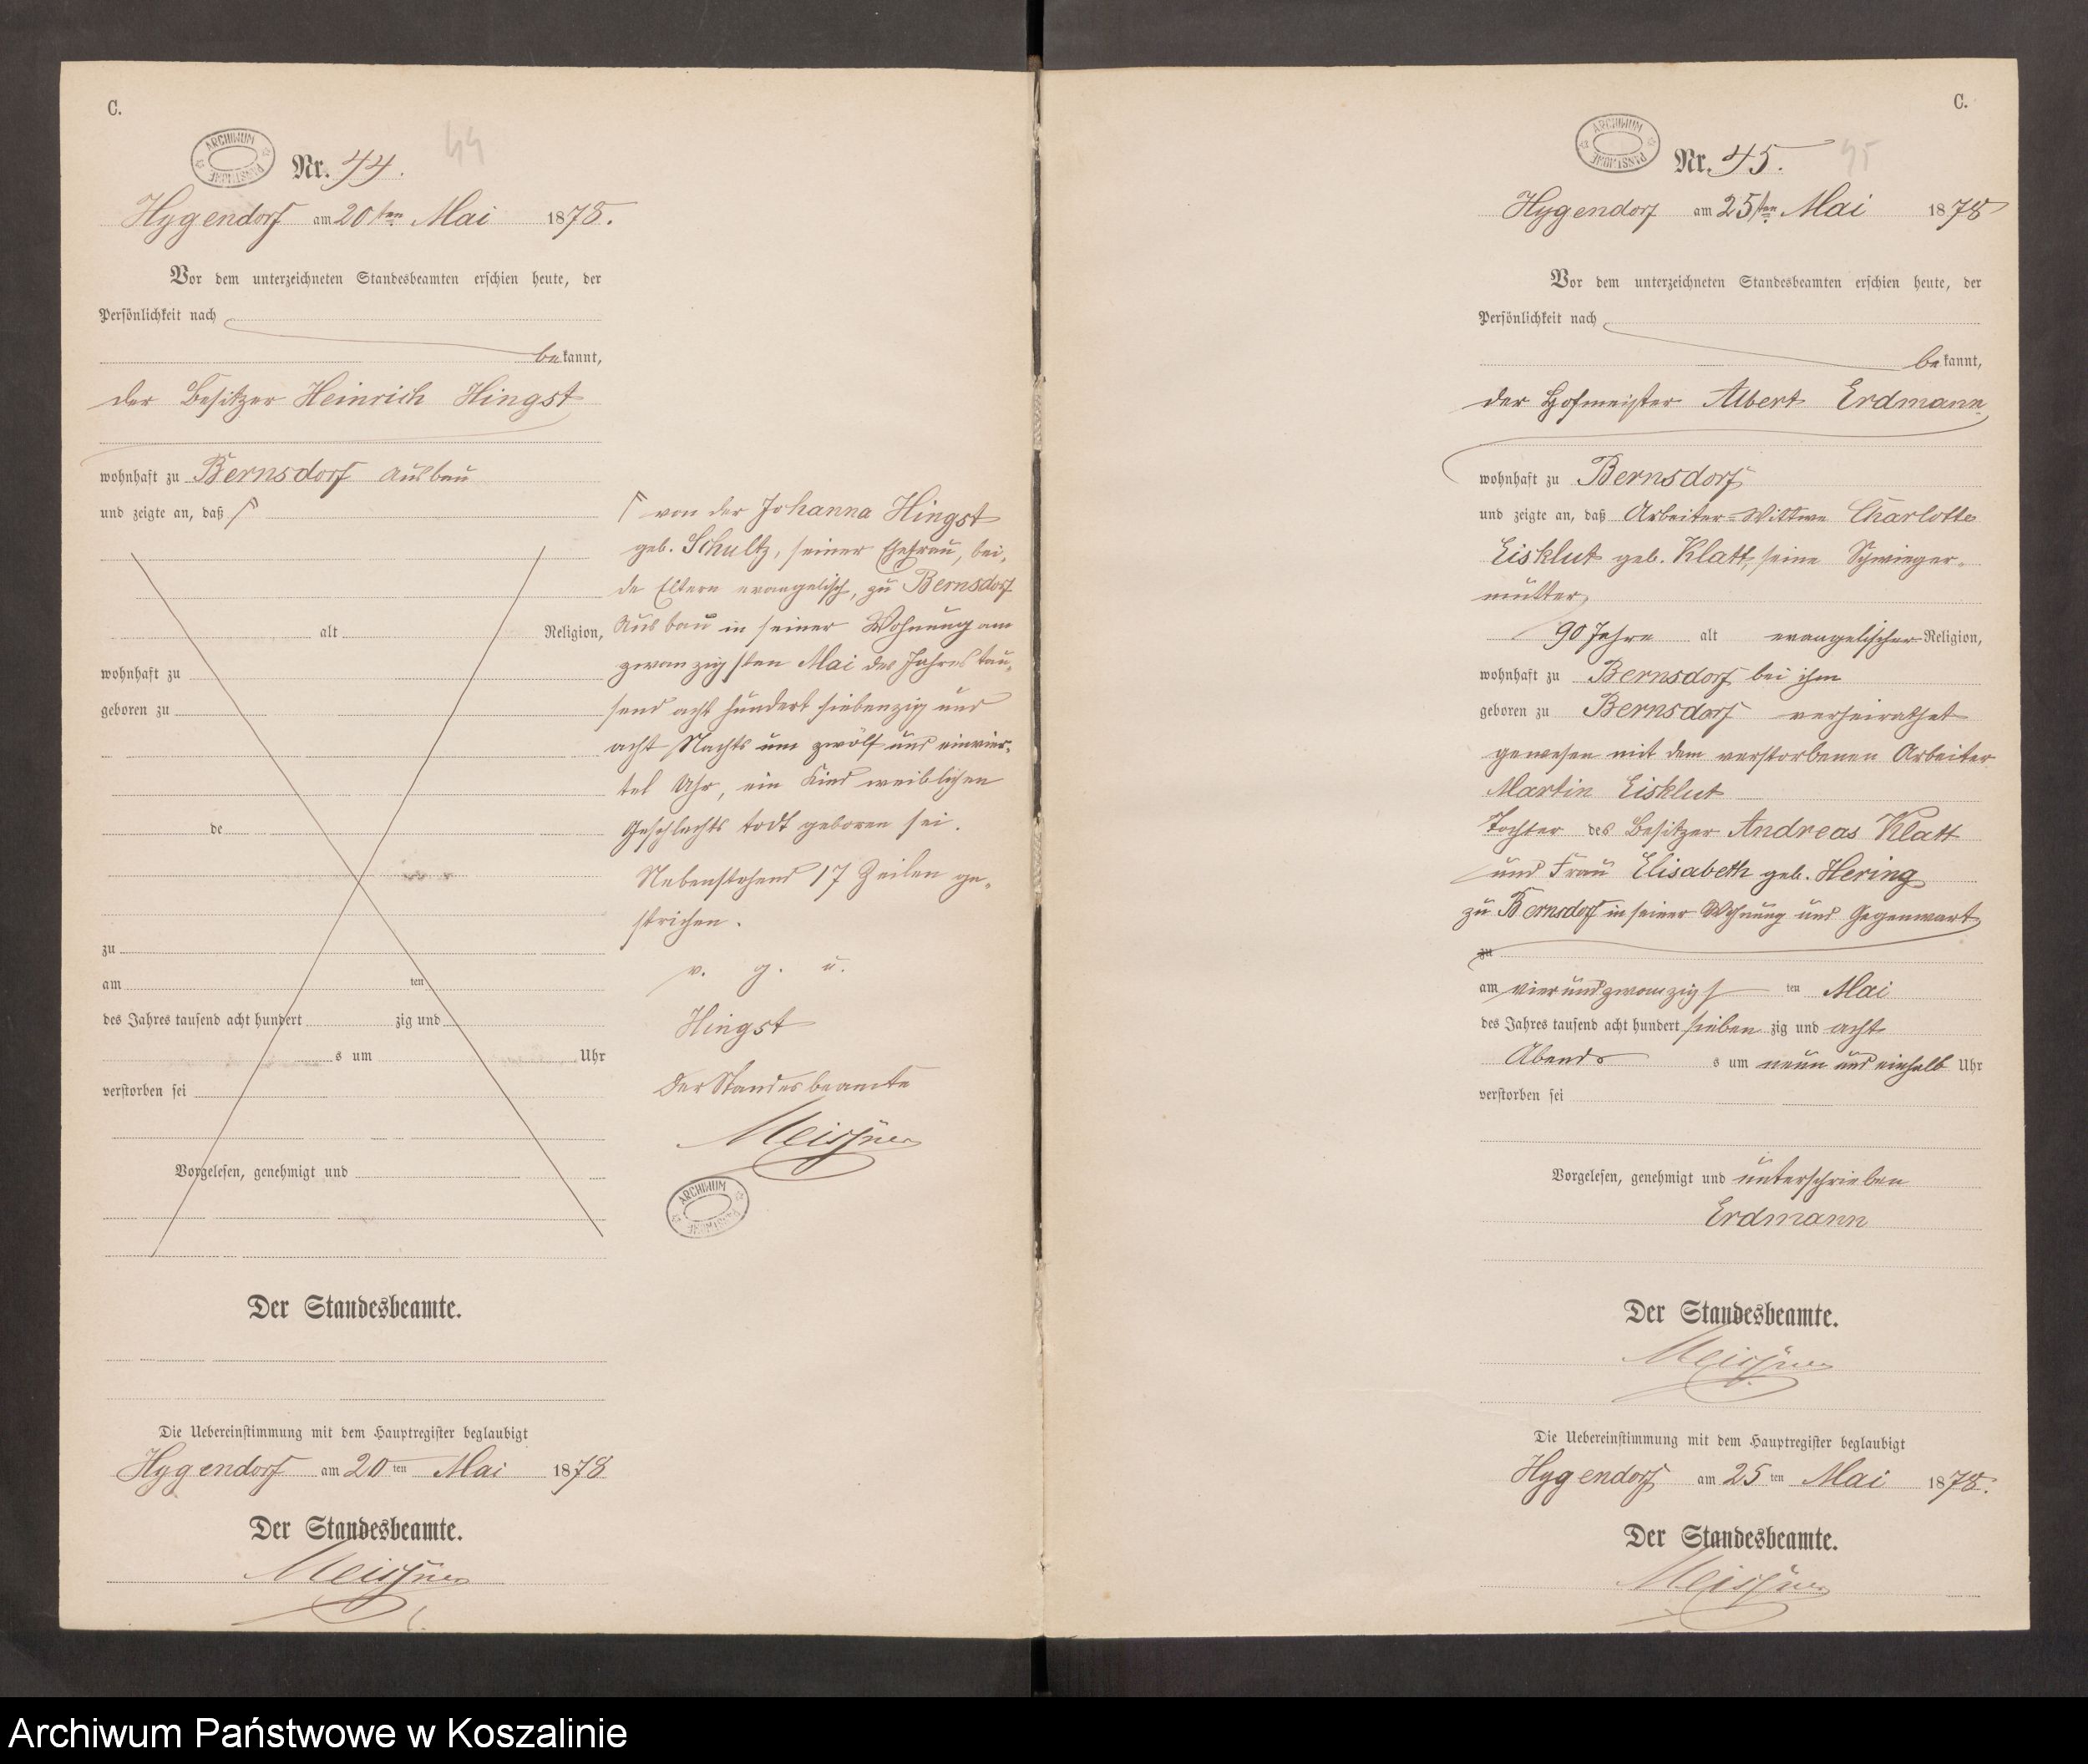 C.
ARCHIWUM PAŃSTWOWE
Nr. 44.
44
Hygendorf am 20ten Mai 1878.
Vor dem unterzeichneten Standesbeamten erschien heute, der
Persönlichkeit nach
bekannt,
der Besitzer Heinrich Hingst
wohnhaft zu Bernsdorf Ausbau
und zeigte an, daß
alt Religion,
wohnhaft zu
geboren zu
de
zu
am ten
des Jahres tausend acht hundert zig und
s um Uhr
verstorben sei
Vorgelesen, genehmigt und
Der Standesbeamte.
Die Uebereinstimmung mit dem Hauptregister beglaubigt
Hygendorf am 20ten Mai 1878
Der Standesbeamte.
Meissner
von der Johanna Hingst
geb. Schultz, seiner Ehefrau, bei-
de Eltern evangelisch, zu Bernsdorf
Ausbau in seiner Wohnung am
zwanzigsten Mai des Jahres tau-
send acht hundert siebenzig und
acht Nachts um zwölf und einvier-
tel Uhr, ein Kind weiblichen
Geschlechts todt geboren sei.
Nebenstehend 17 Zeilen ge-
strichen.
v. g. u.
Hingst
Der Standesbeamte
Meissner
ARCHIWUM PAŃSTWOWE
C.
ARCHIWUM PAŃSTWOWE
Nr. 45.
45
Hygendorf am 25ten Mai 1878
Vor dem unterzeichneten Standesbeamten erschien heute, der
Persönlichkeit nach
bekannt,
der Hofmeister Albert Erdmann
wohnhaft zu Bernsdorf
und zeigte an, daß Arbeiter-Wittwe Charlotte
Eisklut geb. Klatt, seine Schwieger-
mutter,
90 Jahre alt evangelischer Religion,
wohnhaft zu Bernsdorf bei ihm
geboren zu Bernsdorf verheirathet
gewesen mit dem verstorbenen Arbeiter
Martin Eisklut
Tochter des Besitzer Andreas Klatt
und Frau Elisabeth geb. Hering
zu Bernsdorf in seiner Wohnung und Gegenwart
zu
am vierundzwanzigsten Mai
des Jahres tausend acht hundert siebenzig und acht
Abends s um neun und einhalb Uhr
verstorben sei
Vorgelesen, genehmigt und unterschrieben
Erdmann
Der Standesbeamte.
Meissner
Die Uebereinstimmung mit dem Hauptregister beglaubigt
Hygendorf am 25ten Mai 1878.
Der Standesbeamte.
Meissner
Archiwum Państwowe w Koszalinie